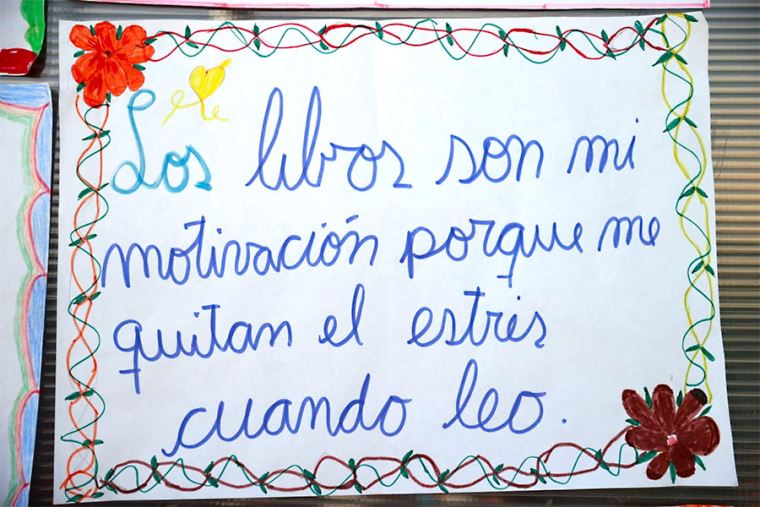 Los libros son mi
motivación porque me
quitan el estrés
cuando leo.